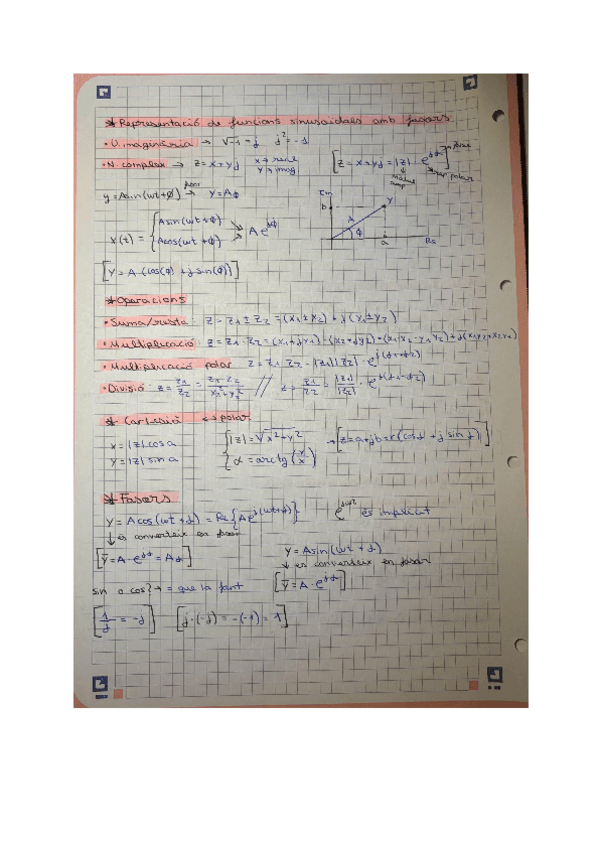 * Representació de funcions sinusoidals amb fasors
• U. imaginària → √-1 = j   j² = -1
• N. complex → z = x + yj   x → real   y → imag   [z = x + yj = |z| · e^jα]
y = A sin(wt + ϕ) → Y = Aϕ
Im
b   A   Y
ϕ
a   Re
x(t) = { A sin(wt + ϕ)   A cos(wt + ϕ) → A e^jϕ
[Y = A · (cos(ϕ) + j sin(ϕ))]
* Operacions
• Suma/resta: z = z1 ± z2 = (x1 ± x2) + j(y1 ± y2)
• Multiplicació: z = z1 · z2 = (x1 + jy1) · (x2 + jy2) = (x1x2 - y1y2) + j(x1y2 + x2y1)
• Multiplicació polar z = z1 · z2 = |z1| |z2| · e^j(α1+α2)
• Divisió: z = z1/z2 = // z = z1/z2 = |z1|/|z2| · e^j(α1-α2)
* Cartesià ↔ polar
x = |z| cos α
y = |z| sin α
{ |z| = √x² + y²
α = arctg (y/x)
→ [z = a + jb = r(cos α + j sin α)]
* Fasors
Y = A cos(wt + α) = Re{A e^j(wt+α)}   e^jwt és implícit
↓ es converteix en fasor
[Y̅ = A · e^jα = Aα]
Y = A sin(wt + α)
↓ es converteix en fasor
[Y̅ = A · e^jα]
sin o cos? → = que la font
[1/j = -j]   [j · (-j) = -(-1) = 1]